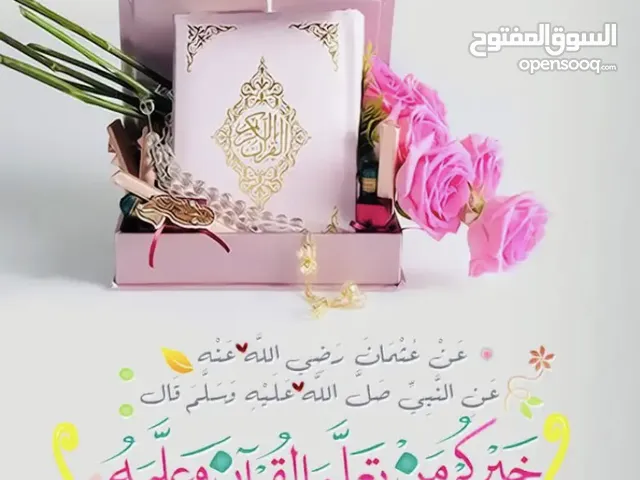 السوق المفتوح
opensooq.com
القرآن الكريم
عَنْ عُثْمَانَ رَضِيَ اللَّه عَنْه
عَنِ النَّبِيِّ صَلَّ اللَّه عَلَيْهِ وَسَلَّمَ قَال
خَيْرُكُمْ مَنْ تَعَلَّمَ القُرْآنَ وَعَلَّمَهُ